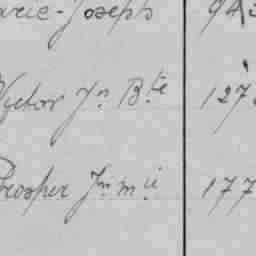 Marie-Joseph
Victor Jn Bte 127
Prosper Jn mie 177